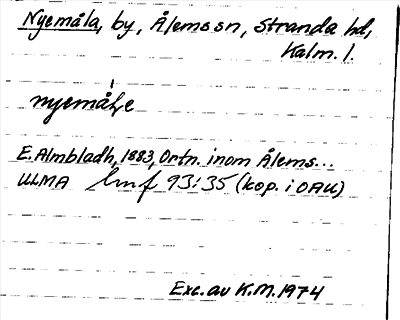 Nyemåla, by, Ålems sn, Stranda hd,
Kalm. l.
nyemåḷe
E. Almbladh, 1883, Ortn. inom Ålems...
ULMA 93:35 (kop. i OAU)
Exc. av K.M. 1974